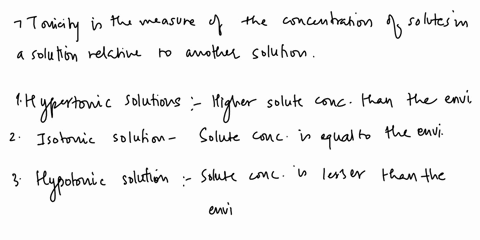 → Tonicity is the measure of the concentration of solutes in
a solution relative to another solution.
1. Hypertonic solutions :- Higher solute conc. than the envi
2. Isotonic solution - Solute conc. is equal to the envi.
3. Hypotonic solution :- Solute conc. is lesser than the
envi